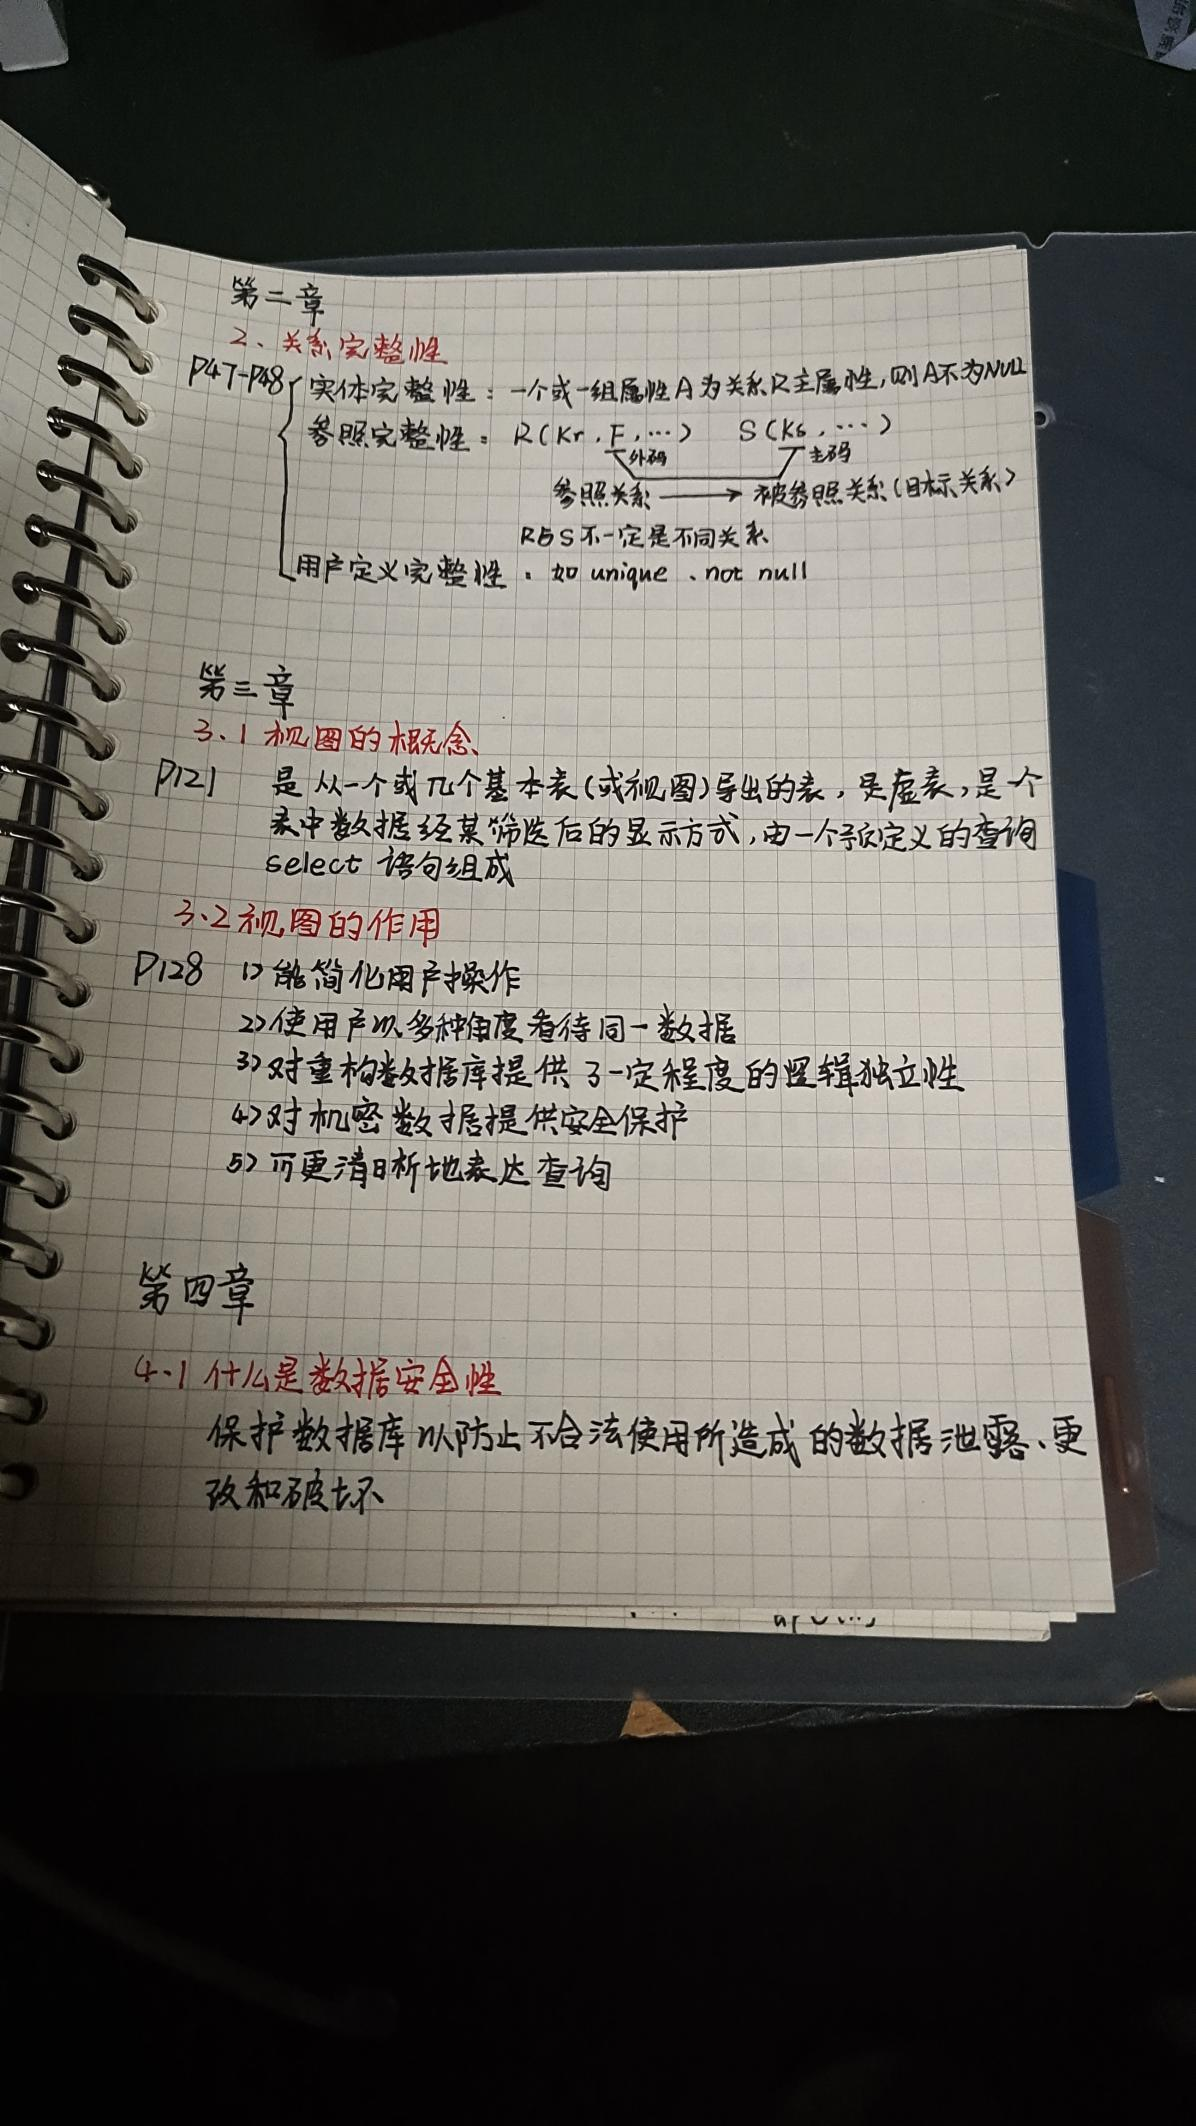 第二章
2、关系完整性
P47-P48
实体完整性：一个或一组属性A为关系R主属性,则A不为NULL
参照完整性：R(Kr,F,…) S(Ks,…)
外码 主码
参照关系 → 被参照关系(目标关系)
R与S不一定是不同关系
用户定义完整性：如unique、not null
第三章
3.1 视图的概念
P121 是从一个或几个基本表(或视图)导出的表，是虚表，是一个
表中数据经某筛选后的显示方式,由一个预定义的查询
select 语句组成
3.2 视图的作用
P128 1> 能简化用户操作
2> 使用户以多种角度看待同一数据
3> 对重构数据库提供了一定程度的逻辑独立性
4> 对机密数据提供安全保护
5> 可更清晰地表达查询
第四章
4.1 什么是数据安全性
保护数据库以防止不合法使用所造成的数据泄露、更
改和破坏